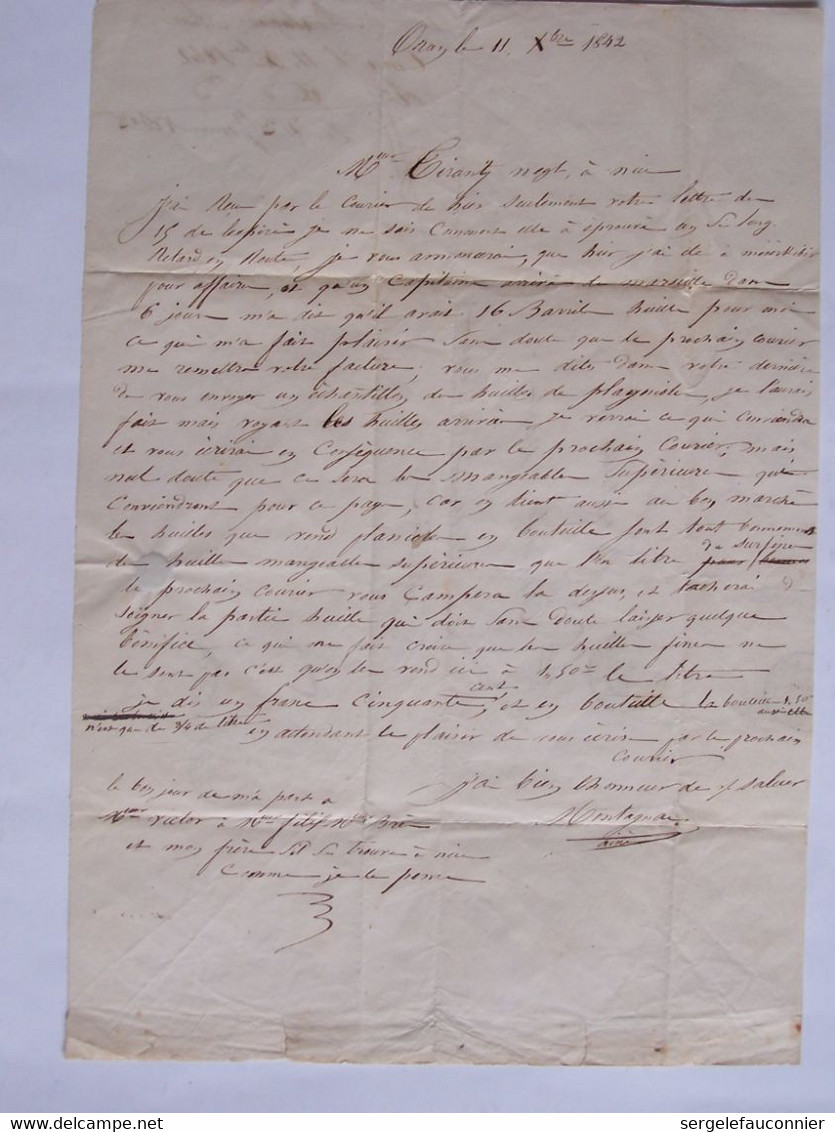 Oran, le 11 Xbre 1842
Mr Tiranty negt, à nice
j'ai Recu par le Courier de hier seulement votre lettre du
15 de je ne sais Comment elle à éprouvé un Si long
Retard, en Route, je vous annoncerai, que hier j'ai été à
pour affaire, et qu'un Capitaine arrivé de marseille dans
6 jours m'a dit qu'il avait 16 Barrils huille pour moi
ce qui m'a fait plaisir Sans doute que le prochain Courier
me remettra votre facture; vous me dites dans votre dernière
de vous envoyer un échentillon de huilles de, je l'aurais
fait mais voyant les huilles arrivée je verrai ce qui Conviendra
et vous écrirai en Conséquence par le prochain Courier, mais
nul doute que ce sera les mangeables Supérieure qui
Conviendront pour ce pays, Car on tient aussi au bon marché
les huilles que vend en bouteille sont tout bonnement
de huille mangeable supérieure que l'on titre du surfine
le prochain Courier vous la dessus, et tacherai
Soigner la partie huille qui doit Sans doute laisser quelque
bénifice, ce qui me fait croire que les huilles fines ne
le sont pas c'est qu'on les vend ici à 1,50 le litre
je dis un franc Cinquante Cent, et en bouteille la bouteille 1.50
n'est que de 3/4 de litre en attendant le plaisir de vous écrire par le prochain
Courier
j'ai bien l'honneur de saluer
Montagnac
ainé
le bon jour de m'a part a
Mr victor à
et mon frère Sil Se trouve à nice
Comme je le pense
sergelefauconnier